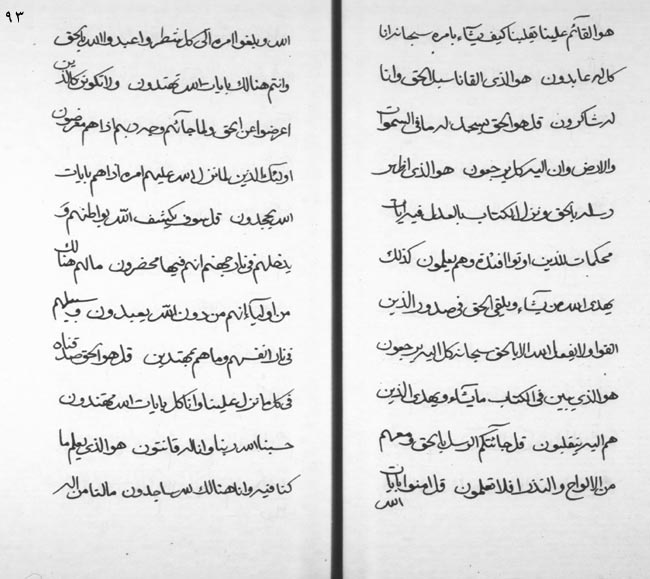 هو القآئم علينا يقلبنا كيف يشآء بامره سبحانه انا
كل له عابدون هو الذى القانا سبل الحق وانا
له شاكرون قل هو الحق يسجد له ما فى السموات
والارض وان اليه كل يرجعون هو الذى اظهر
رسله بالحق ونزل الكتاب بالعدل فيه ايات
محكمات للذين اوتوا افئدة وهم يعلمون كذلك
يهدى الله من يشآء ويلقى الحق فى صدور الذين
اتقوا ولا يفعل الله الا بالحق سبحانه كل اليه يرجعون
هو الذى يبين فى الكتاب ما يشآء ويهدى الذين
هم اليه ينقلبون قل جآئتكم الرسل بالحق ومعهم
من الالواح والنذر افلا تعلمون قل امنوا بايات
الله
٩٣
الله وبلغوا امره الى كل شطر واعبدوا الله بالحق
وانتم هنالك بايات الله تهتدون ولا تكونن كالذين
اعرضوا عن الحق ولما جآئهم وجه ربهم اذا هم معرضون
اولئك الذين لما نزل الله عليهم امره اذا هم بايات
الله يجحدون قل سوف يكشف الله بواطنهم و
يدخلهم فى نار جهنم انهم فيها محضرون ما لهم هنالك
من اوليآء انهم من دون الله يعبدون
فى نار انفسهم وما هم بمهتدين قل هو الحق صدقناه
فى كل ما نزل علينا وانا كل بايات الله مهتدون
حسبنا الله ربنا وانا له قانتون هو الذى يعلم ما
كنا فيه وانا هنالك لله ساجدون ما لنا من اله